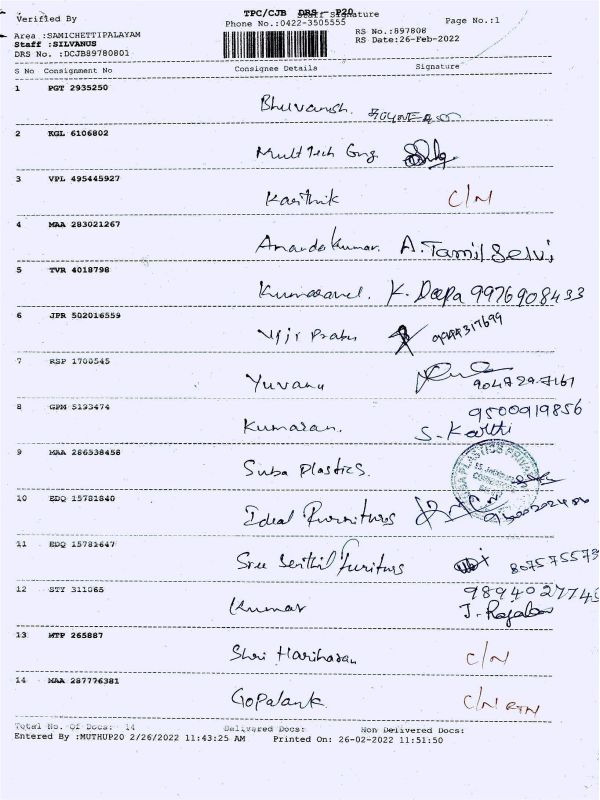 TPC/CJB DRS - P20
Verified By Staff Signature
Phone No.:0422-3505555 Page No.:1
Area :SAMICHETTIPALAYAM RS No.:897808
Staff :SILVANUS RS Date:26-Feb-2022
DRS No. :DCJB89780801
S No Consignment No Consignee Details Signature
1 PGT 2935250
Bhuvanesh.
2 KGL 6106802
Mult Tech Eng
3 VPL 495445927
Karthik C/N
4 MAA 283021267
Ananda Kumar. A. Tamil Selvi
5 TVR 4018798
Kumaravel. K. Deepa 9976908433
6 JPR 502016559
7 RSP 1700545
Yuvanu
8 GPM 5193474 9500919856
Kumaran. S. Karthi
9 MAA 286538458
Suba Plastics
10 EDQ 15781840
Ideal Furnitures
11 EDQ 15781647
Sree Senthil Furiturs
12 STY 311065
Kumar
13 MTP 265887
Shri Hariharan C/N
14 MAA 287776381
C/N RTN
Total No. Of Docs: 14 Delivered Docs: Non Delivered Docs:
Entered By :MUTHUP20 2/26/2022 11:43:25 AM Printed On: 26-02-2022 11:51:50